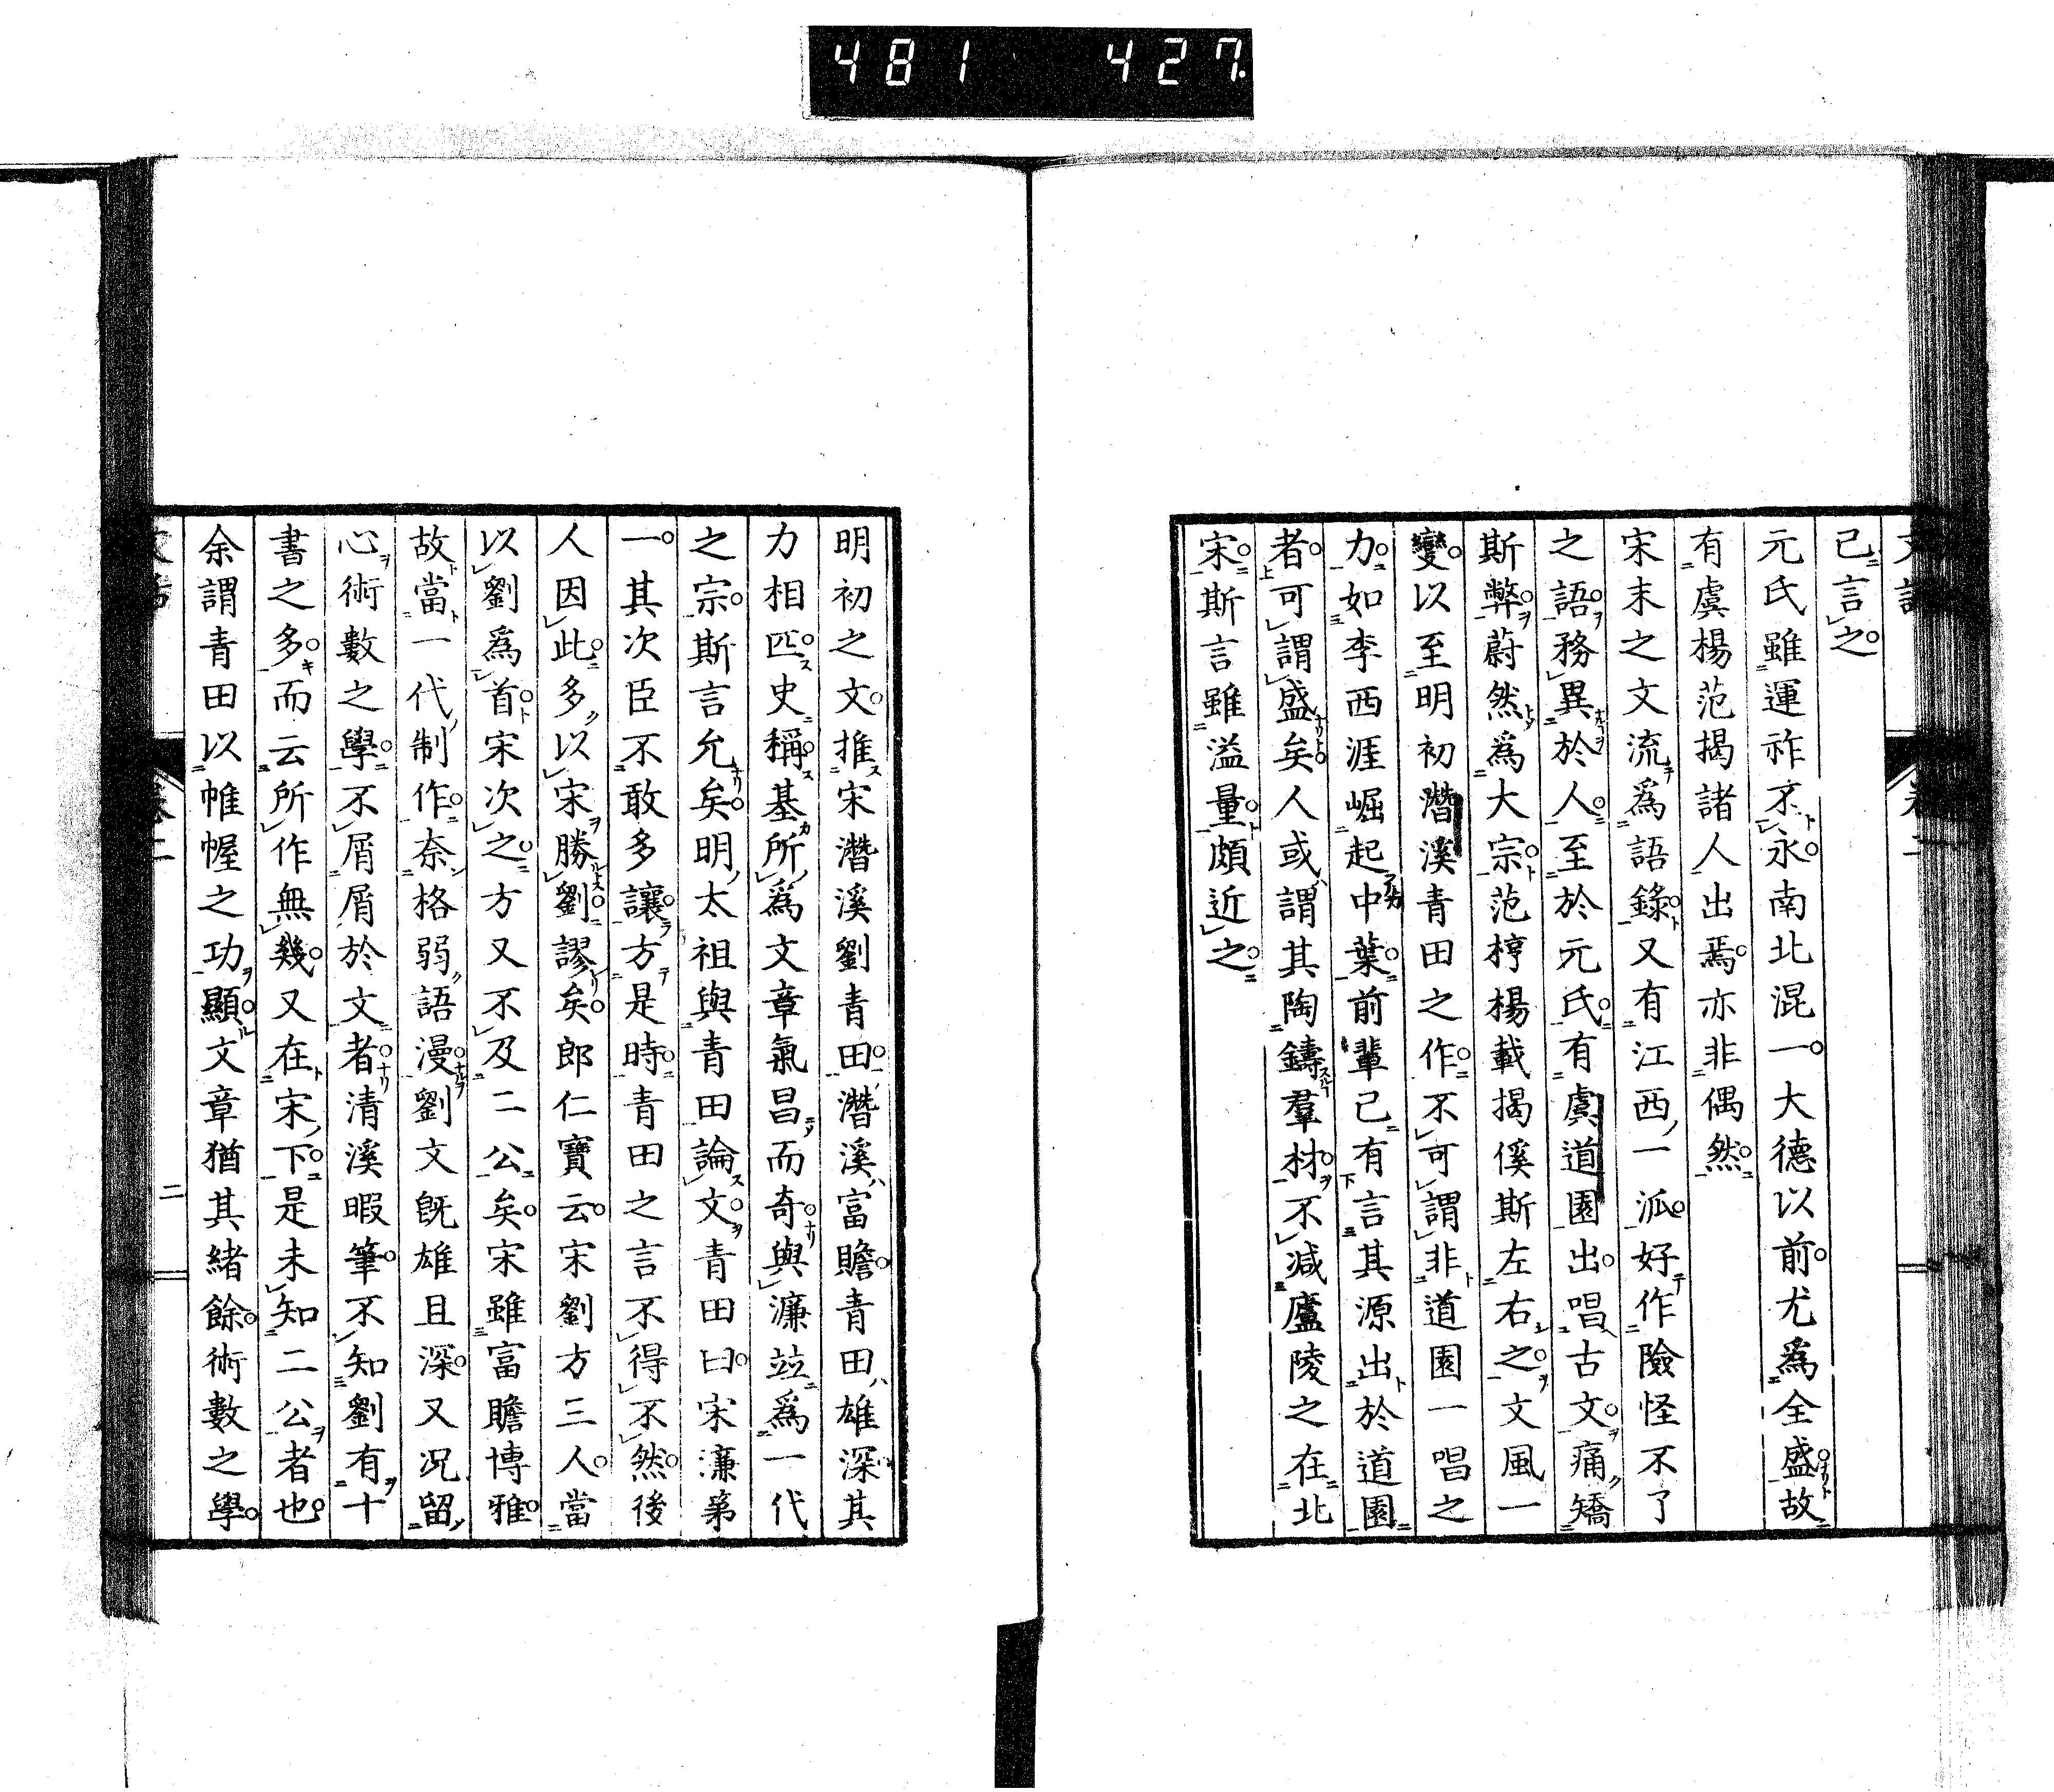 481 427.
已言之
元氏雖運祚不永南北混一大德以前尤爲全盛故
有虞楊范揭諸人出焉亦非偶然
宋末之文流爲語錄又有江西一派好作險怪不了
之語務異於人至於元氏有虞道園出唱古文痛矯
斯弊蔚然爲大宗范梈楊載揭傒斯左右之文風一
變以至明初潛溪青田之作不可謂非道園一唱之
力如李西涯崛起中葉前輩已有言其源出於道園
者可謂盛矣人或謂其陶鑄羣材不減廬陵之在北
宋斯言雖溢量頗近之
明初之文推宋濳溪劉青田濳溪富贍青田雄深其
力相匹史稱基所爲文章氣昌而奇與濂竝爲一代
之宗斯言允矣明太祖與青田論文青田曰宋濂第
一其次臣不敢多讓方是時青田之言不得不然後
人因此多以宋勝劉謬矣郎仁寶云宋劉方三人當
以劉爲首宋次之方又不及二公矣宋雖富贍博雅
故當一代制作奈格弱語漫劉文旣雄且深又况留
心術數之學不屑屑於文者清溪暇筆不知劉有十
書之多而云所作無幾又在宋下是未知二公者也
余謂青田以帷幄之功顯文章猶其緒餘術數之學
二